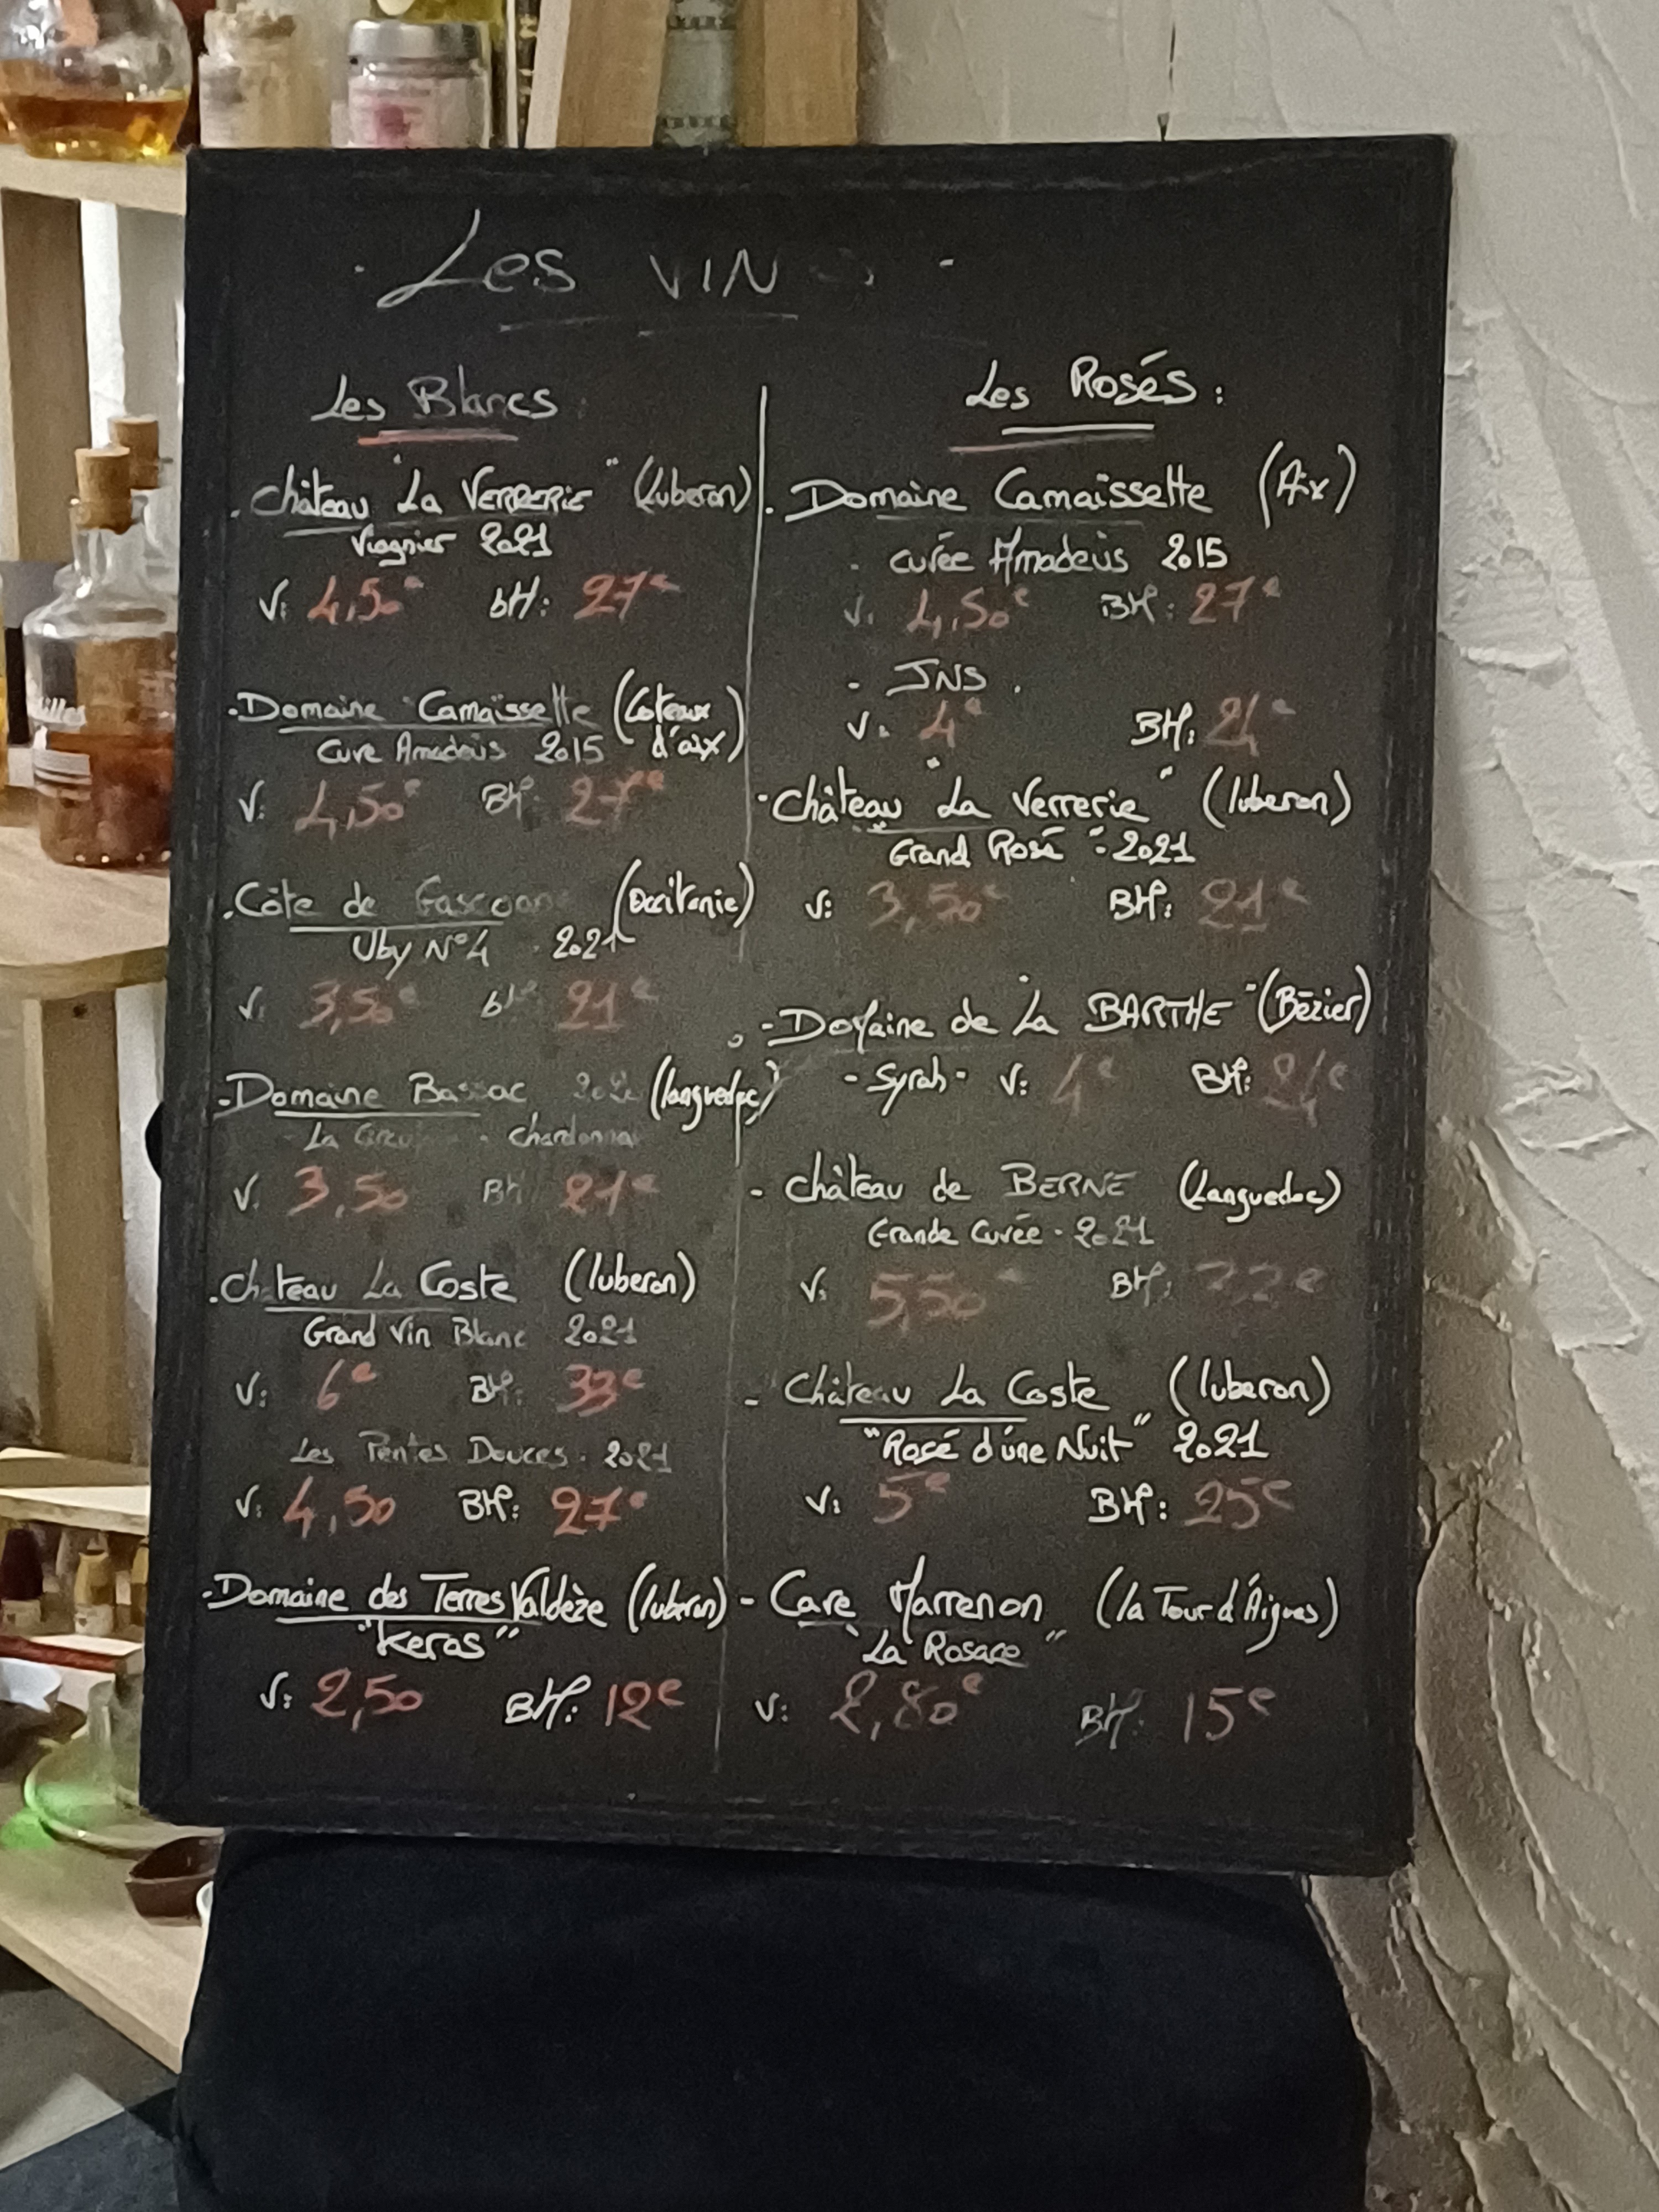 . Les VINS .
Les Blancs
. Château "La VERRERIE" (Luberon)
Viognier 2021
V: 4,50€ bH: 27€
. Domaine Camaïssette (Coteaux d'aix)
Cuve Amadeüs 2015
V: 4,50€ BH: 27€
. Côte de Gascogne (Occitanie)
Uby N°4 . 2021
V: 3,50€ bH 21€
- Domaine Bassac (languedoc)
La - Chardonnay
V. 3,50 BH 21€
. Château La Coste (luberon)
Grand Vin Blanc 2021
V: 6€ BH: 33€
Les Pentes Douces . 2021
V: 4,50 BH: 27€
- Domaine des Terres Valdèze (luberon)
"Keras"
V: 2,50 BH: 12€
Les Rosés :
. Domaine Camaïssette (Aix)
. cuvée Amadeüs 2015
V. 4,50€ BH: 27€
- JNS .
V. 4€ BH: 24€
- Château "La Verrerie" (luberon)
Grand Rosé - 2021
V: 3,50€ BH: 21€
- Domaine de "La BARTHE" (Bézier)
- Syrah - V: 4€ BH: 24€
- Château de BERNE (Languedoc)
Grande Cuvée - 2021
V: 5,50€ BH:
- Château La Coste (luberon)
"Rosé d'une Nuit" 2021
V: 5€ BH: 25€
- Cave Marrenon (la Tour d'Aigues)
"La Rosace"
V: 2,80€ BH: 15€